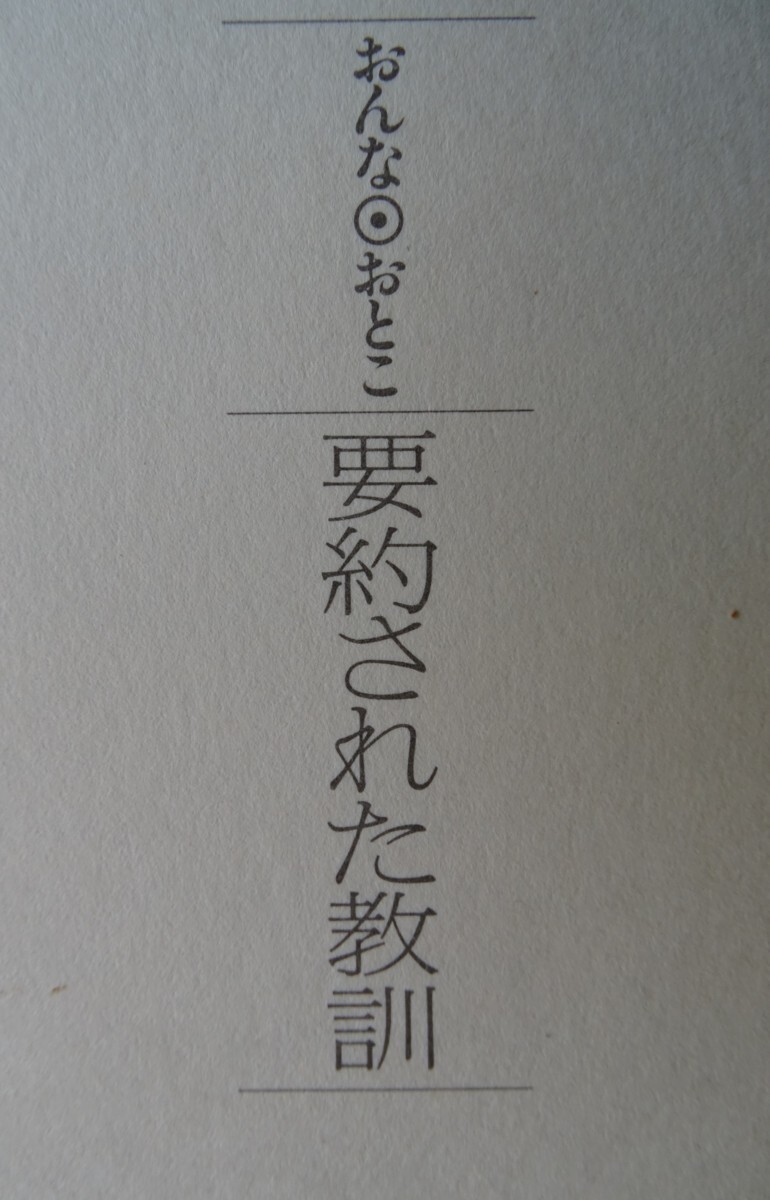 おんな◉おとこ
要約された教訓